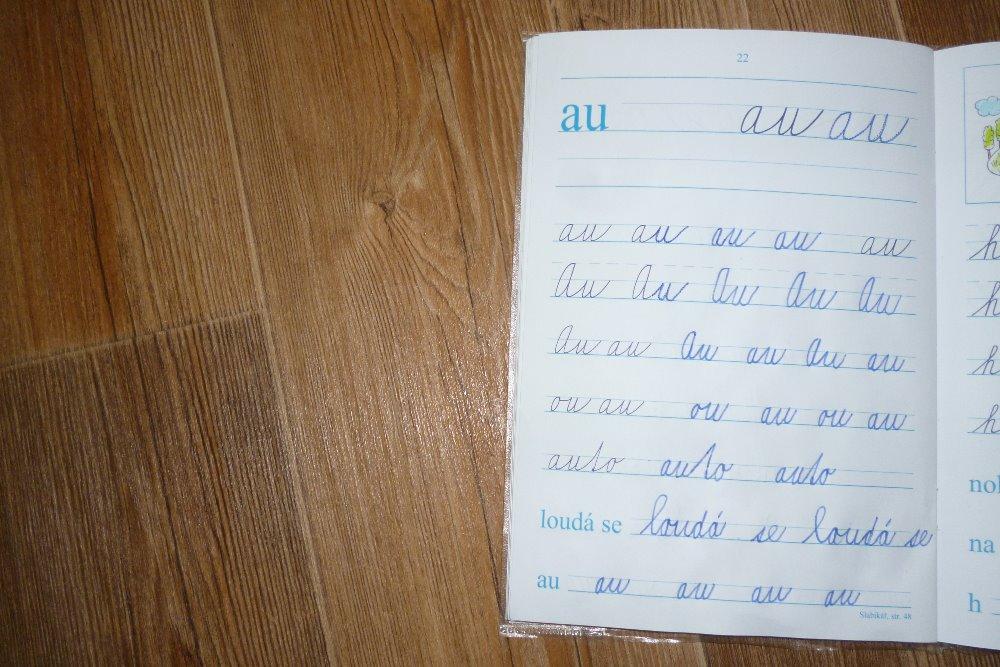 22
au au au
au au au au au
Au Au Au Au Au
Au au Au au Au au
ou au ou au ou au
auto auto auto
loudá se loudá se loudá se
au au au au au
Slabikář, str. 48
h
h
h
h
na
h